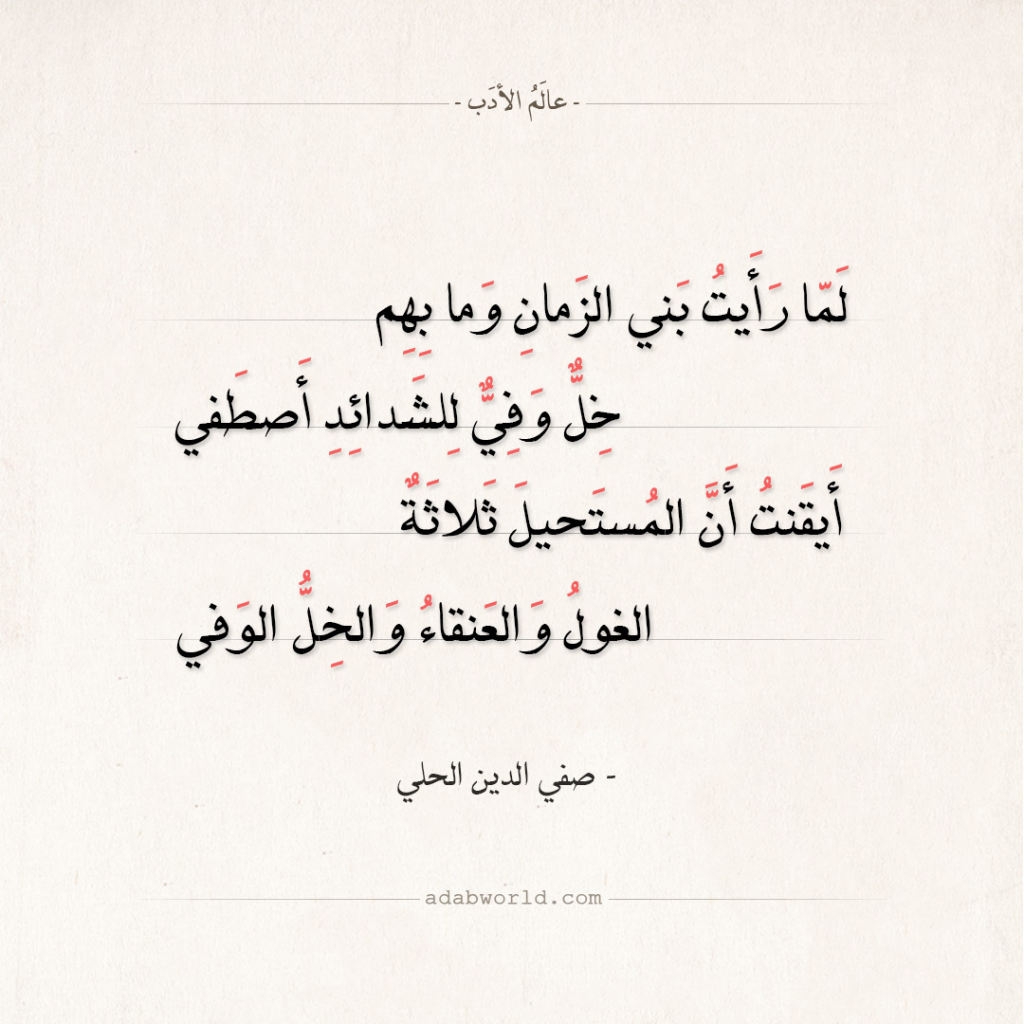 - عالَمُ الأدَب -
لَمّا رَأَيتُ بَني الزَمانِ وَما بِهِم
خِلٌّ وَفِيٌّ لِلشَدائِدِ أَصطَفي
أَيقَنتُ أَنَّ المُستَحيلَ ثَلاثَةٌ
الغولُ وَالعَنقاءُ وَالخِلُّ الوَفي
- صفي الدين الحلي
adabworld.com